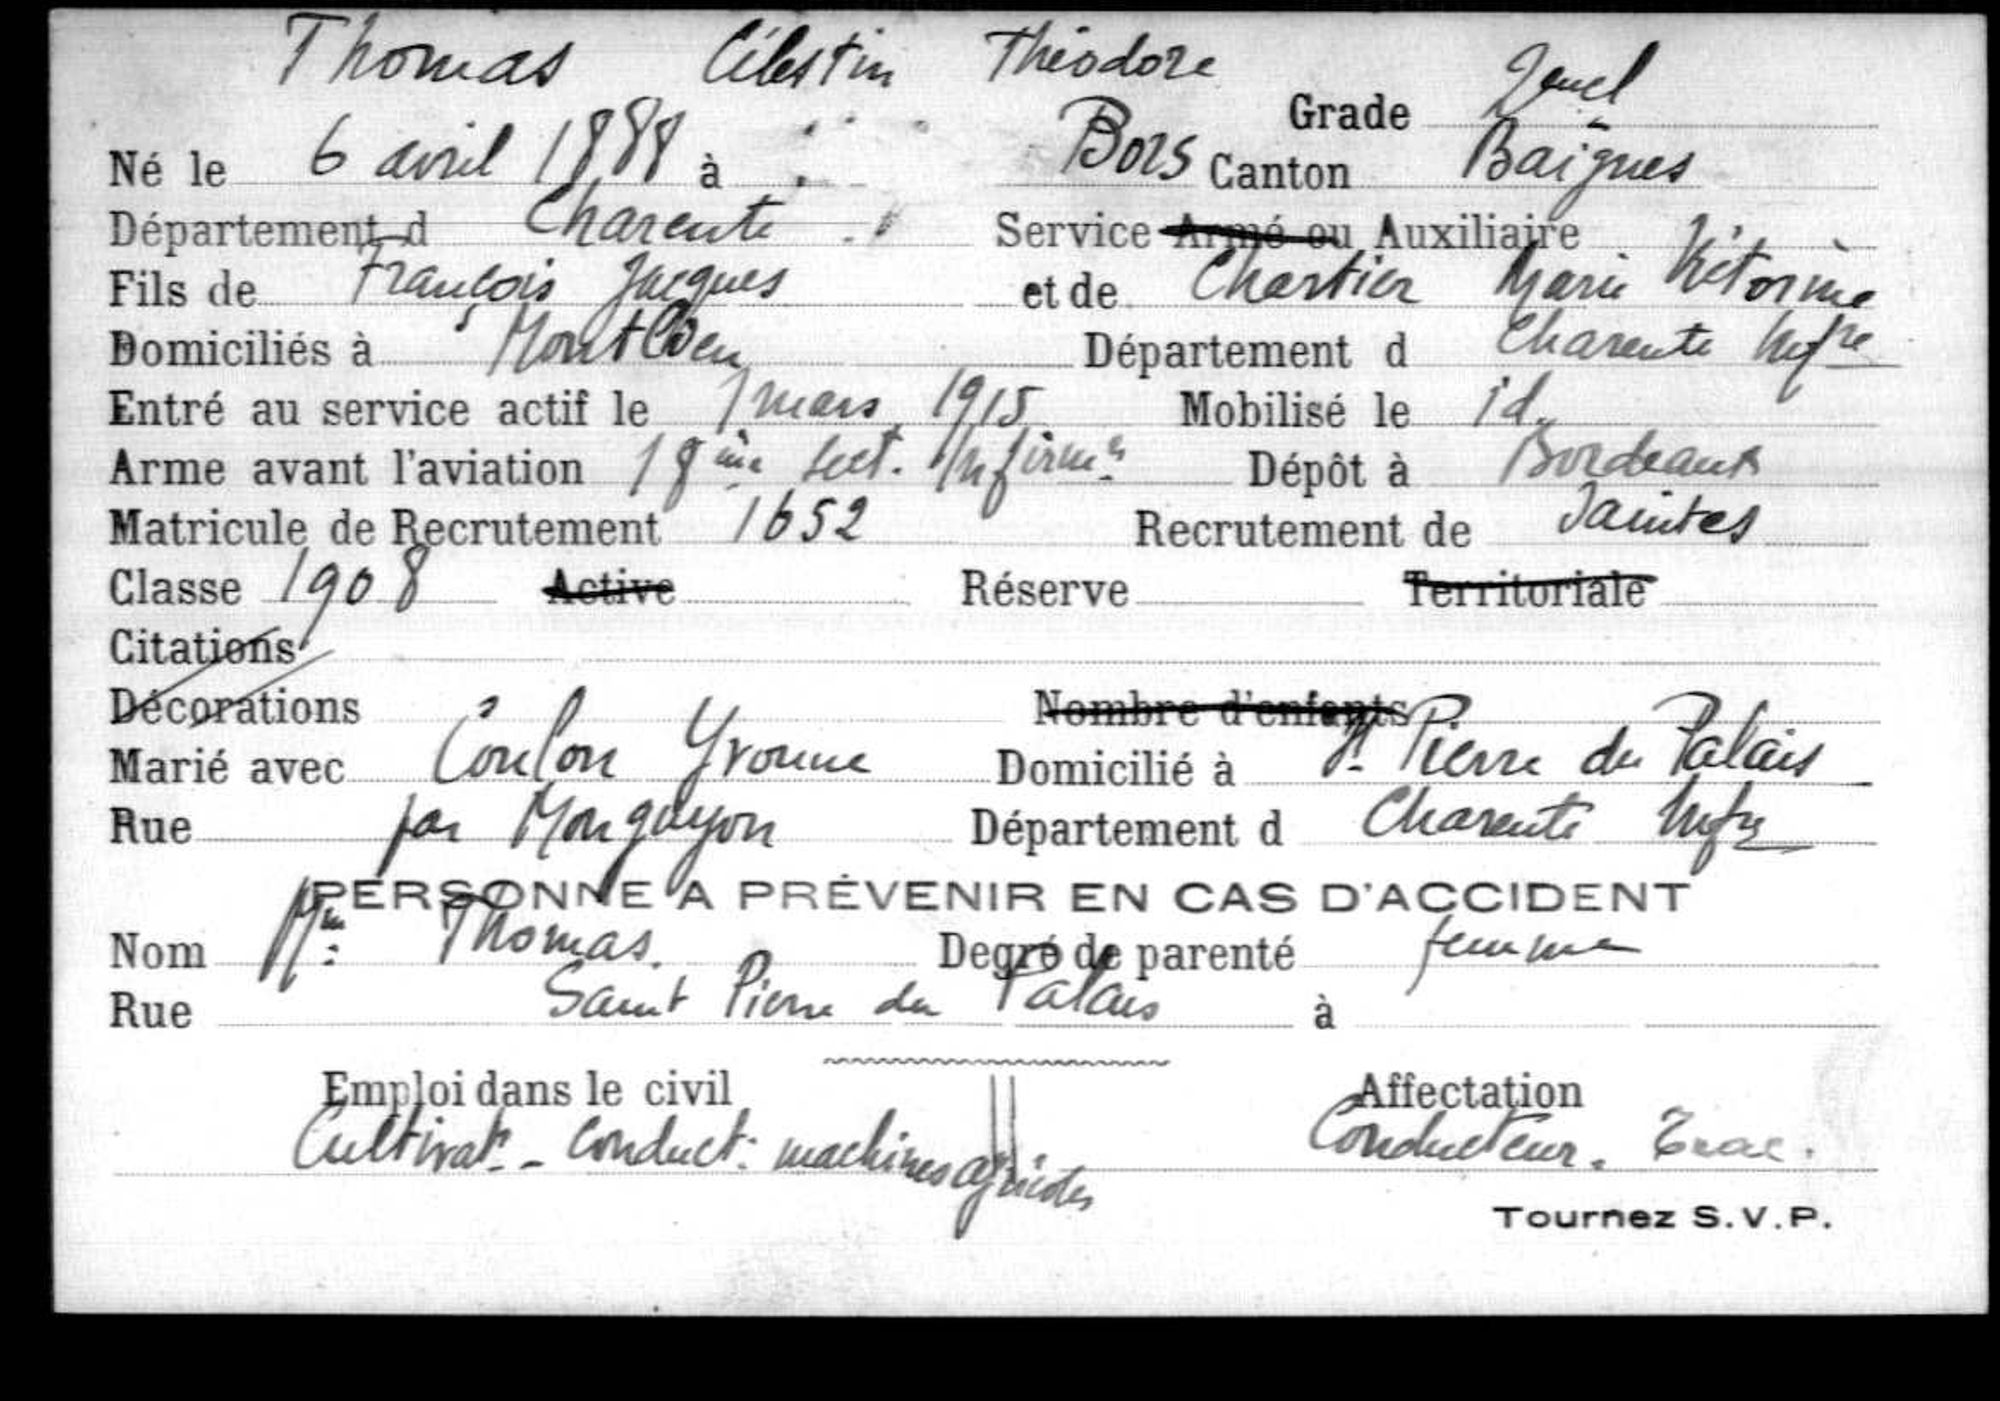 Thomas Célestin Théodore
Grade
Né le 6 avril 1888 à Bors Canton Baignes
Département d Charente Service Armé ou Auxiliaire
Fils de François Jacques et de Chartier Marie Victorine
Domiciliés à Montlieu Département d Charente Infre
Entré au service actif le 1 mars 1915 Mobilisé le id.
Arme avant l'aviation 18ème sect. Infirmrs Dépôt à Bordeaux
Matricule de Recrutement 1652 Recrutement de Saintes
Classe 1908 Active Réserve Territoriale
Citations
Décorations Nombre d'enfants
Marié avec Coulon Yvonne Domicilié à St Pierre du Palais
Rue par Montguyon Département d Charente Infre
PERSONNE A PRÉVENIR EN CAS D'ACCIDENT
Nom Mme Thomas. Degré de parenté femme
Rue Saint Pierre du Palais à
Emploi dans le civil Affectation
Cultivatr - Conduct: machines agricoles Conducteur. Trac.
Tournez S.V.P.